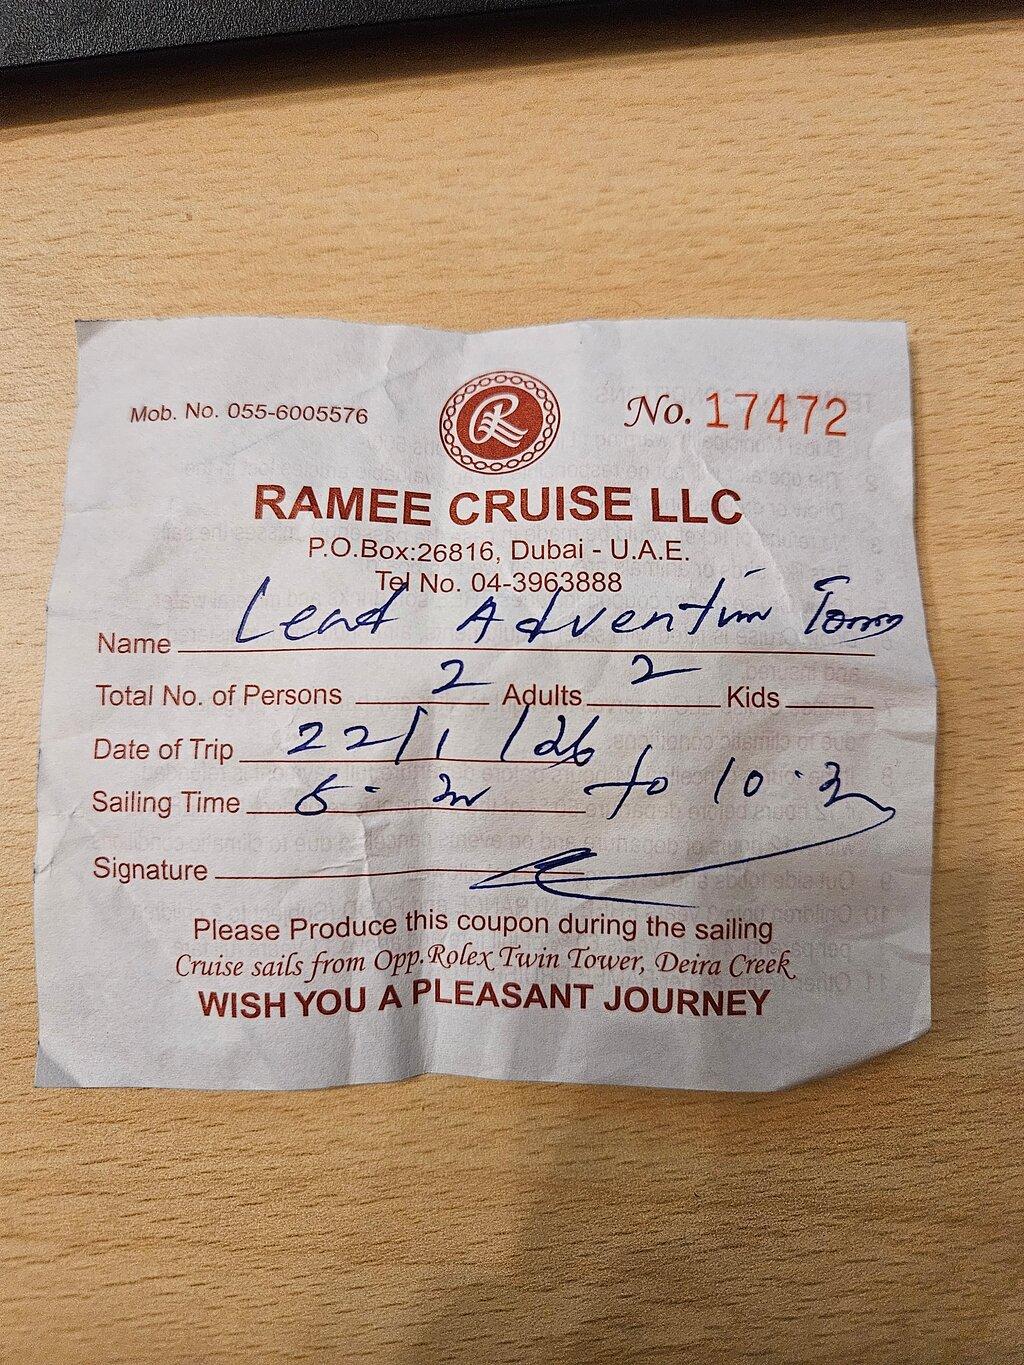 Mob. No. 055-6005576
R
No. 17472
RAMEE CRUISE LLC
P.O.Box:26816, Dubai - U.A.E.
Tel No. 04-3963888
Name Lead Adventure Tours
Total No. of Persons 2 Adults 2 Kids
Date of Trip 22/1/26
Sailing Time to 10.3
Signature
Please Produce this coupon during the sailing
Cruise sails from Opp.Rolex Twin Tower, Deira Creek
WISH YOU A PLEASANT JOURNEY